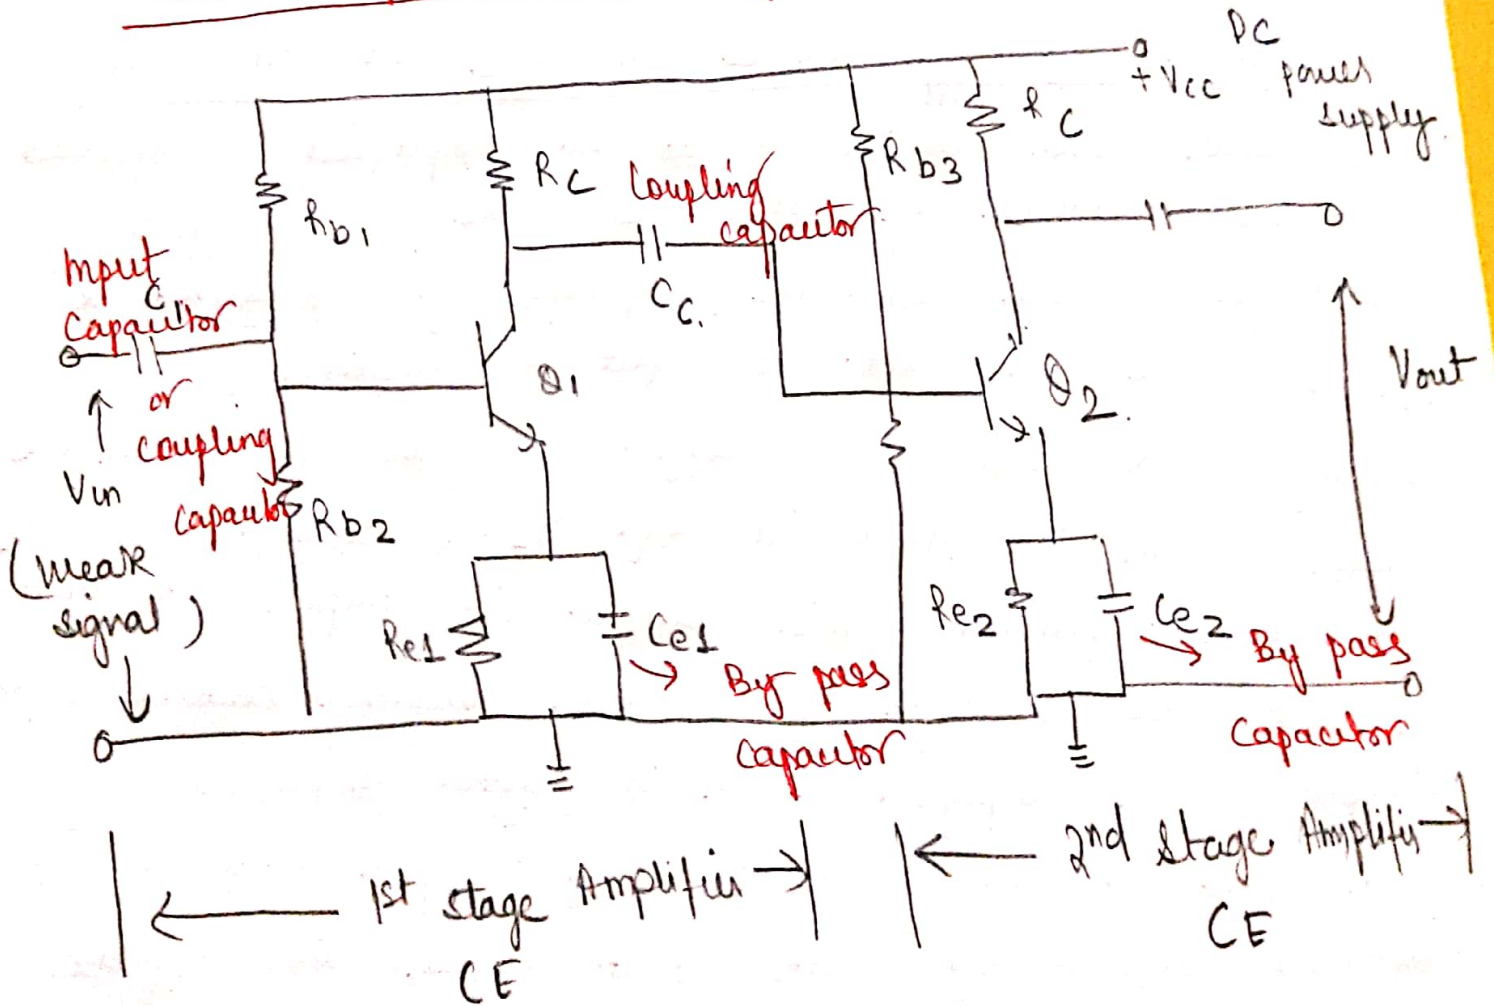 DC
power
supply.
+ Vcc
Rc
Rb3
Rc
Coupling
capacitor
Cc.
Rb1
Input
C
Capacitor
or
coupling
capacitor
Vin
(weak
signal)
Rb2
Q1
Q2.
Vout
Re1
Ce1
By pass
capacitor
Re2
Ce2
By pass
capacitor
1st stage Amplifier
CE
2nd stage Amplifier
CE